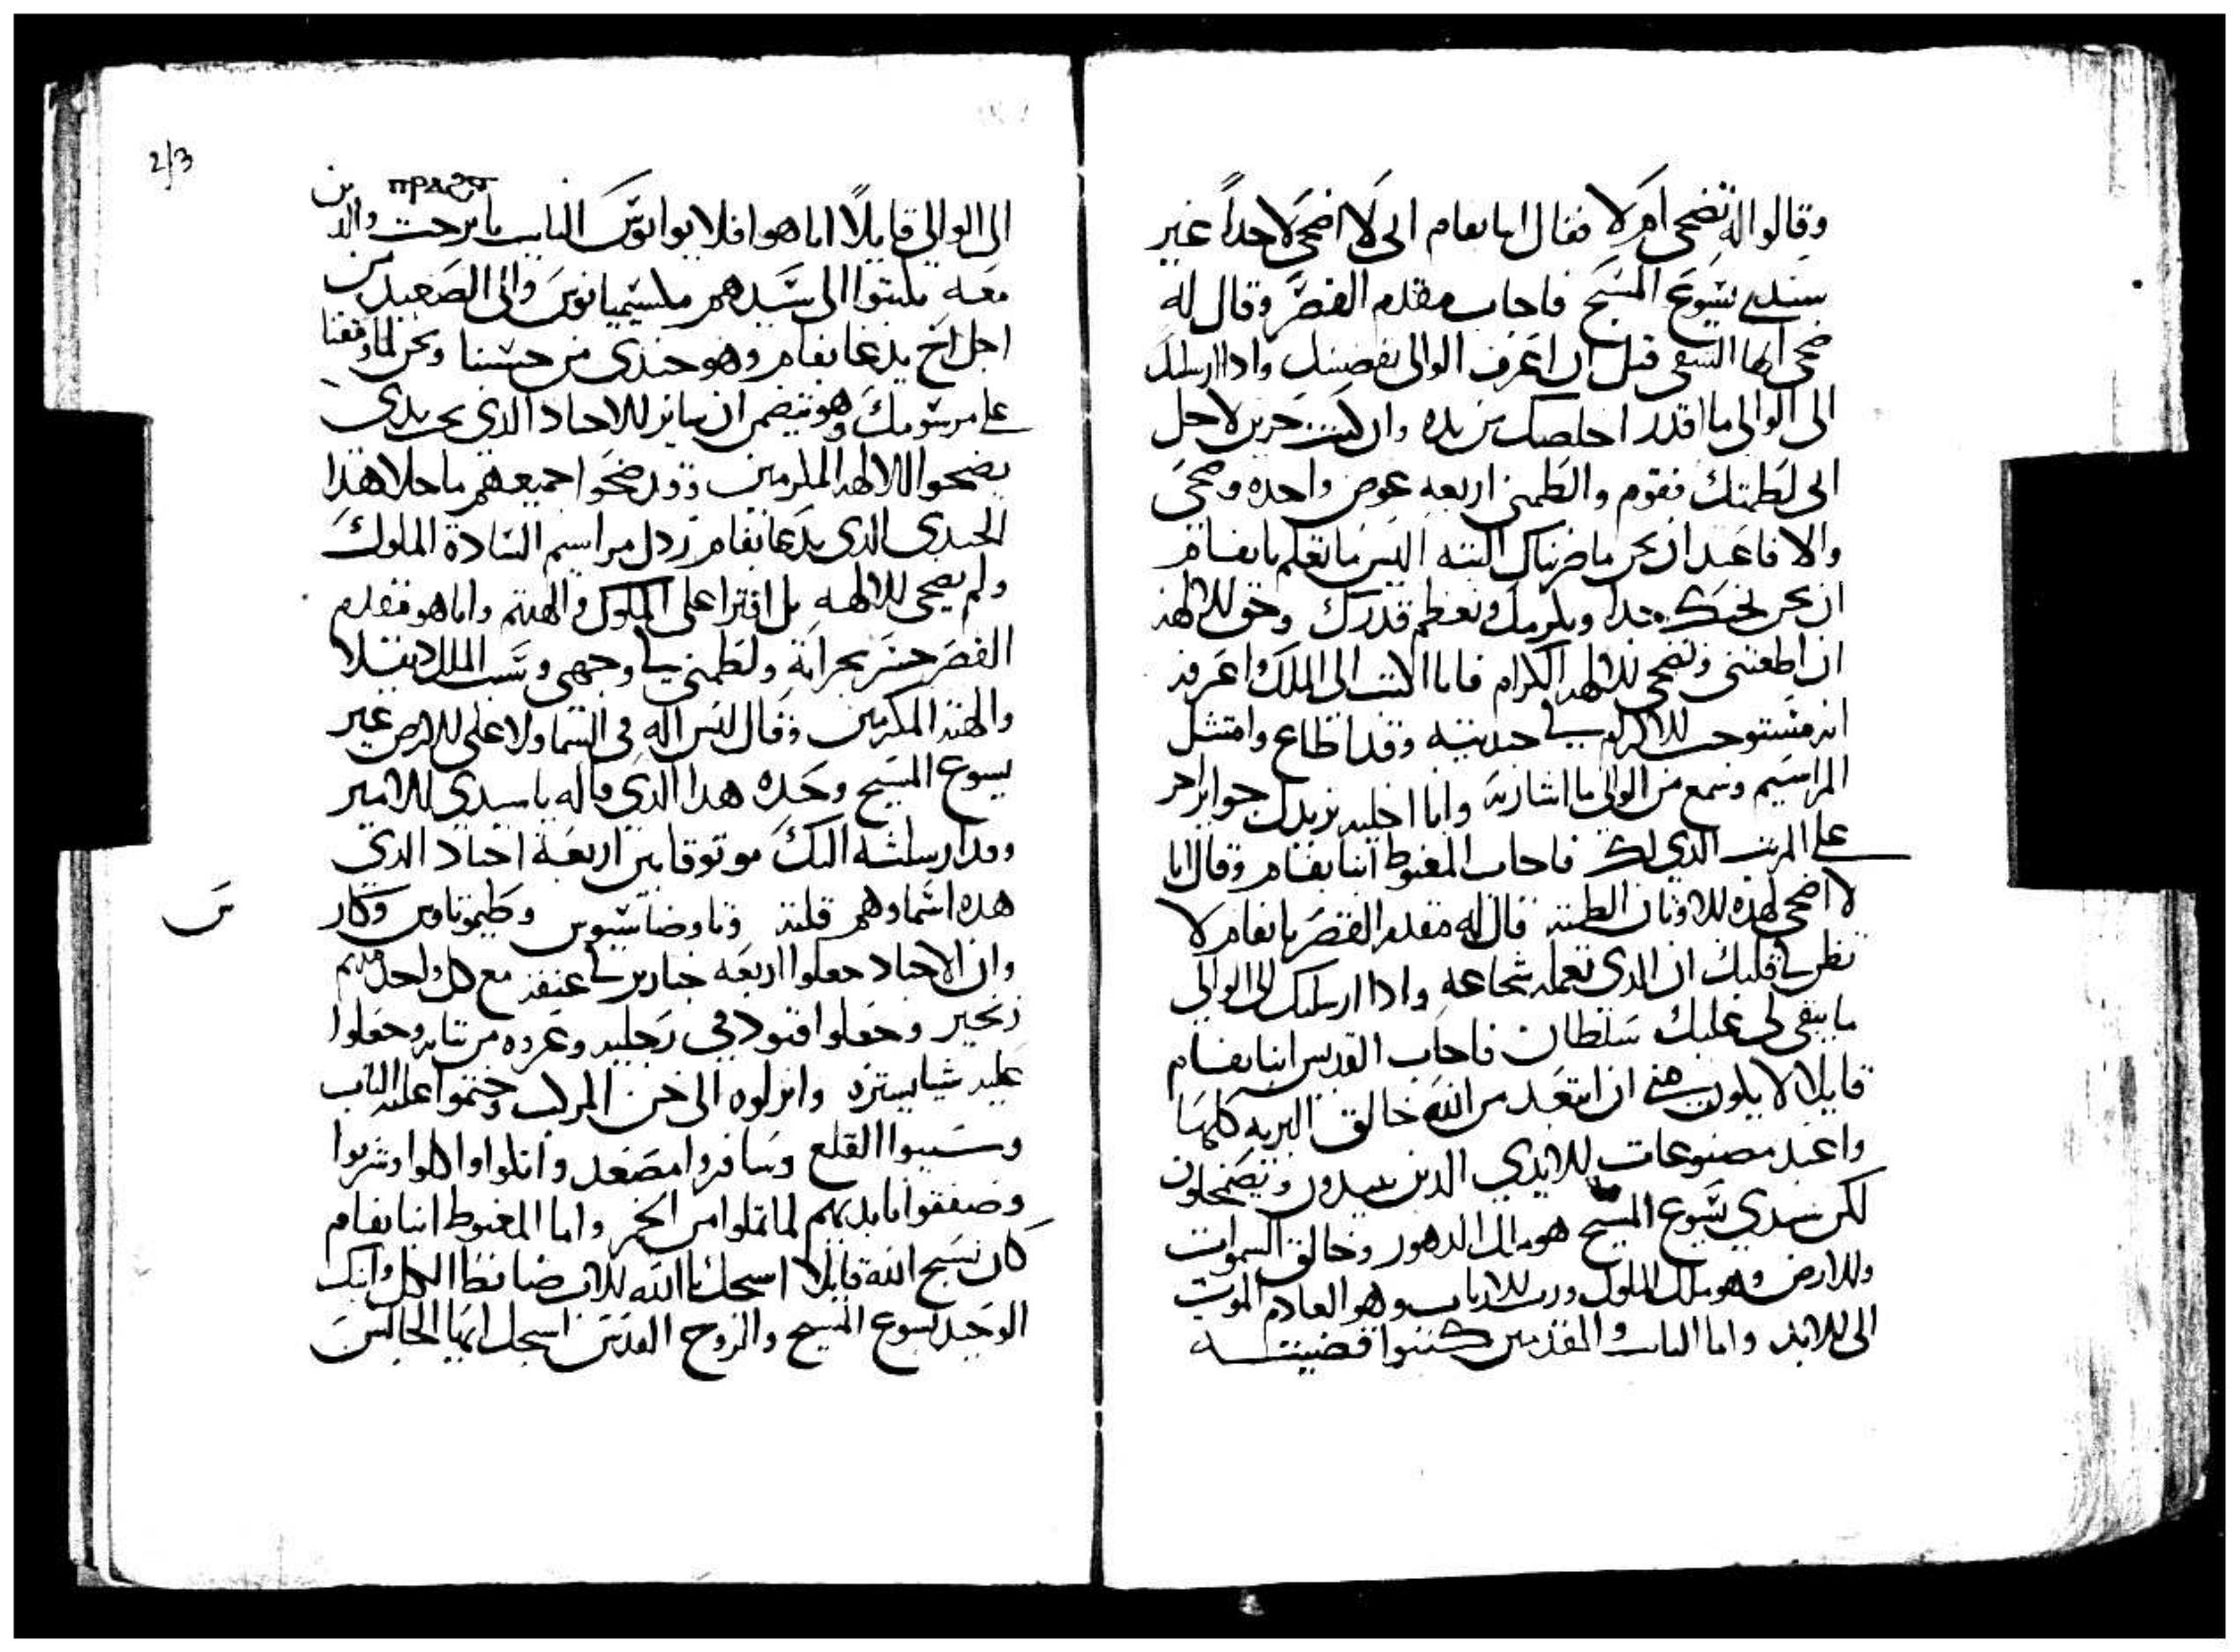 وقالوا له تضحي ام لا فقال ابا بفام اني لا اضحي لاحداً غير
سيدي يسوع المسيح فاجاب مقدم القصر وقال له
ضحي ايها الشقي قبل ان اعرف الوالي بقضيتك واذا ارسلتك
الى الوالي ما اقدر اخلصك من يده وان كنت حزين لاجل
اني لطمتك فقوم والطمني اربعه عوض واحده وضحي
والا فاعبد ان نحن ما ضربناك البته اليس ما تعلم يا بفام
ان نحن نحبك جداً ونكرمك ونعظم قدرك وحق الالهه
ان اطعتني وتضحي للالهه الكرام فانا اكتب الى الملك واعرفه
انه مستوجب الاكرام في جنديته وقد اطاع وامتثل
المراسيم وسمع من الوالي ما اشار به وانا اخليه يزيدك جوايز اخر
على المرتب الذي لك فاجاب المغبوط انبا بفام وقال انا
لا اضحي لهذه الاوثان الطمثه قال له مقدم القصر يا بفام لا
تظن في قلبك ان الذي تعمله شجاعه واذا ارسلتك الى الوالي
ما يبقى لي عليك سلطان فاجاب القديس انبا بفام
قايلا لا يكون مني ان ابتعد من الله خالق البريه كلها
واعبد مصنوعات الايدي الذين يبيدون ويضمحلون
لكن سيدي يسوع المسيح هو ملك الدهور وخالق السموات
والارض وهو ملك الملوك ورب الارباب وهو العادم الموت
الى الابد واما النايب والمقدمين كتبوا قضيته
2/3
الى الوالي قايلاً انا هو افلابيوانوس النايب بابرحت والذين
معه يكتبوا الى سيدهم مكسيميانوس والي الصعيد من
اجل اخ يدعا بفام وهو جندي من جيشنا ونحن لما وقفنا
على مرسومك وهو يتضمن ان ساير الاجناد الذي تحت يدي
يضحوا للالهه المكرمين وقد ضحوا جميعهم ما خلا هذا
الجندي الذي يدعا بفام رذل مراسيم السادة الملوك
ولم يضحي للالهه بل افترا على الملوك والهتهم وانا هو مقدم
القصر جسر بجراته ولطمني في وجهي وسب الملك دقلا
والهته المكرمين وقال ليس اله في السما ولا على الارض غير
يسوع المسيح وحده هذا الذي قاله يا سيدي الامير
وقد ارسلته اليك موثوقا بين اربعة اجناد الذي
هذه اسماوهم قلته وناوضاسيوس وطيموتاوس وكار
س
وان الاجناد جعلوا اربعه خنازير في عنقه مع كل واحد منهم
زنجير وجعلوا قيود في رجليه وعروه من ثيابه وجعلوا
عليه شيا يستره وانزلوه الى خن المركب وختموا عليه الباب
وسيبوا القلع وسافروا مصعد واكلوا وشربوا
وصفقوا بايديهم لما تملوا من الخمر واما المغبوط انبا بفام
كان يسبح الله قايلا اسبحك يا الله الاب ضابط الكل وابنك
الوحيد يسوع المسيح والروح القدس اسبحك ايها الجالس